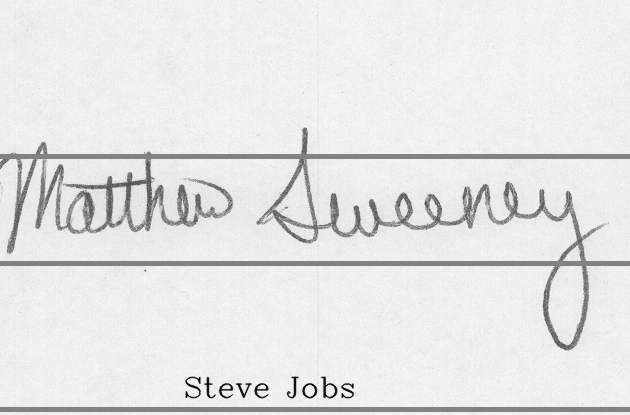 Matthew Sweeney
Steve Jobs